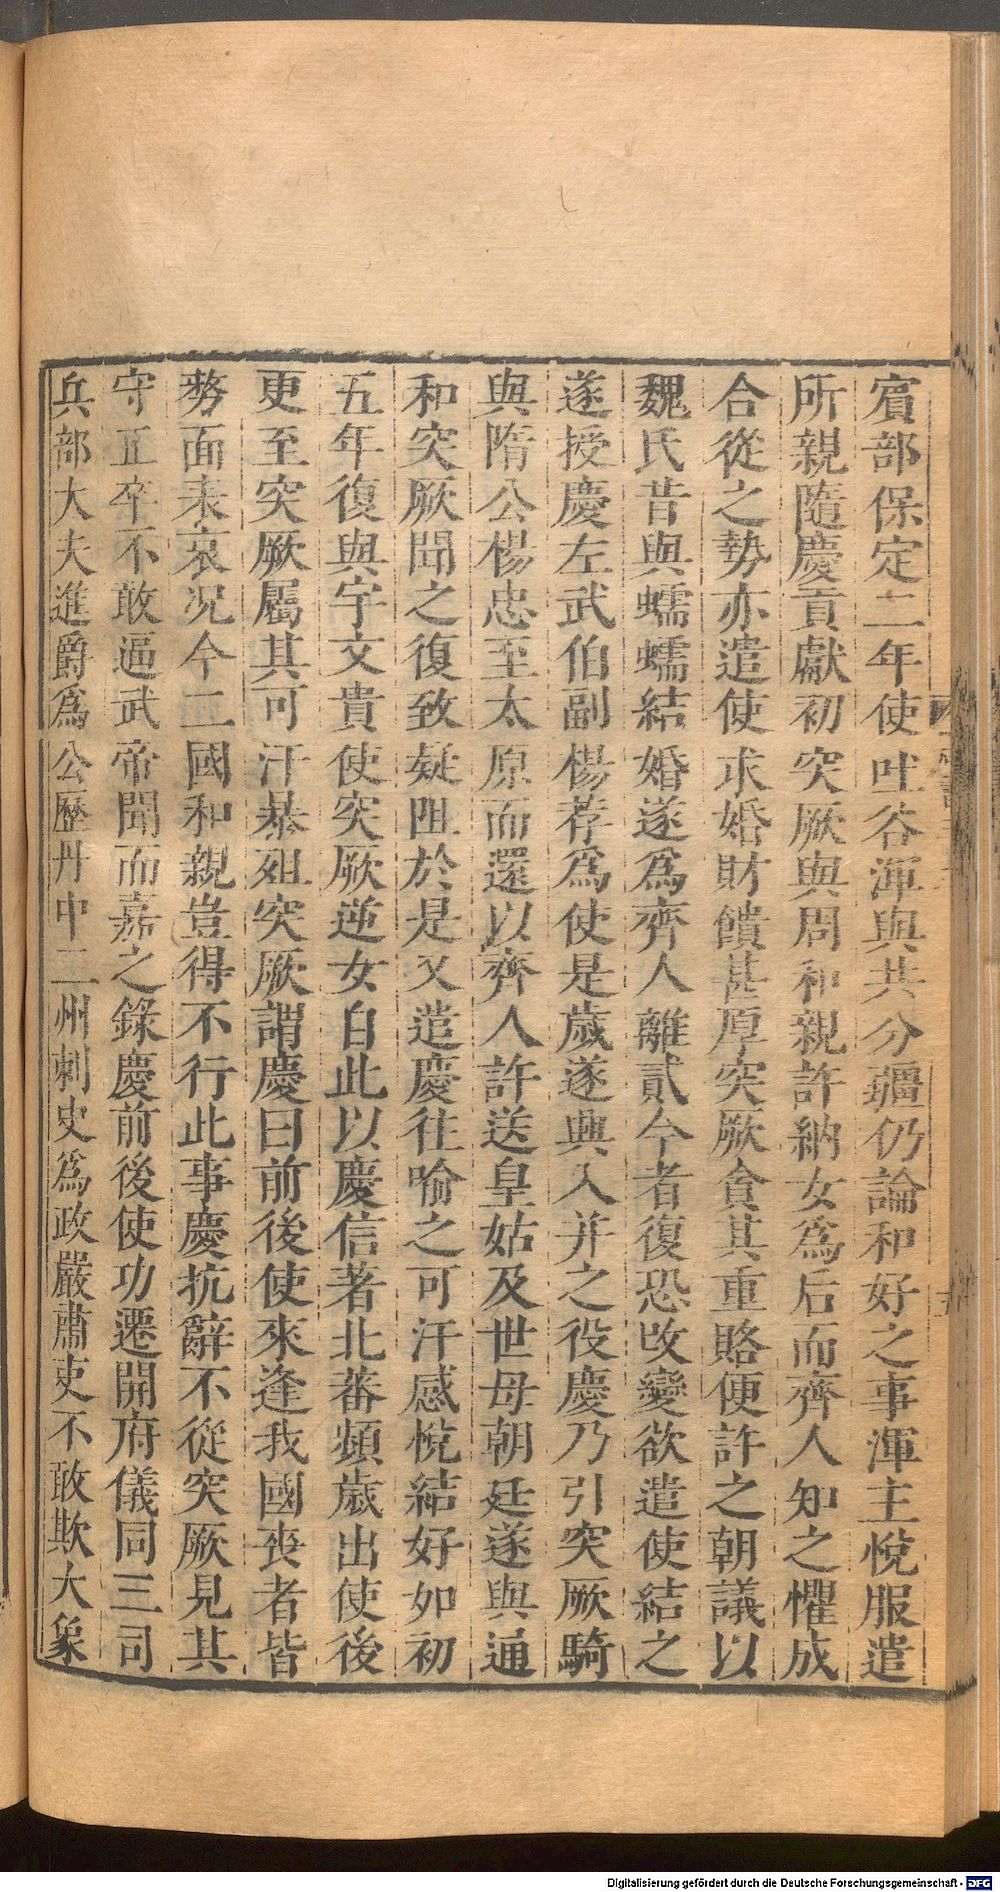 賔部保定二年使吐谷渾與共分疆仍論和好之事渾主悅服遣
所親隨慶貢獻初突厥與周和親許納女爲后而齊人知之懼成
合從之勢亦遣使求婚財饋甚厚突厥貪其重賂便許之朝議以
魏氏昔與蠕蠕結婚遂爲齊人離貳今者復恐改變欲遣使結之
遂授慶左武伯副楊荐爲使是歲遂興入并之役慶乃引突厥騎
與隋公楊忠至太原而還以齊人許送皇姑及世母朝廷遂與通
和突厥聞之復致疑阻於是又遣慶往喻之可汗感悅結好如初
五年復與宇文貴使突厥逆女自此以慶信著北蕃頻歲出使後
更至突厥屬其可汗暴殂突厥謂慶曰前後使來逢我國喪者皆
剺面表哀况今二國和親豈得不行此事慶抗辭不從突厥見其
守正卒不敢逼武帝聞而嘉之錄慶前後使功遷開府儀同三司
兵部大夫進爵爲公歷丹中二州刺史爲政嚴肅吏不敢欺大象
Digitalisierung gefördert durch die Deutsche Forschungsgemeinschaft - DFG